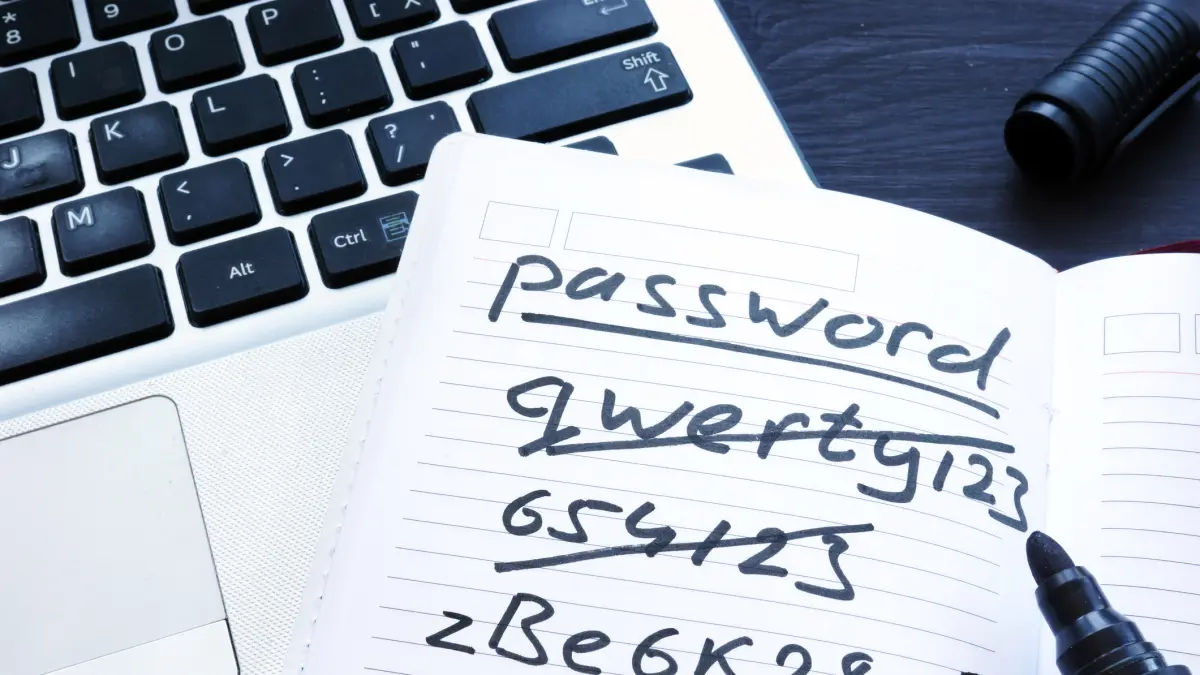 * 8 9
I O P [
J K L : ; " ' Shift
M < , > . ? /
Alt Ctrl
password
qwerty123
654123